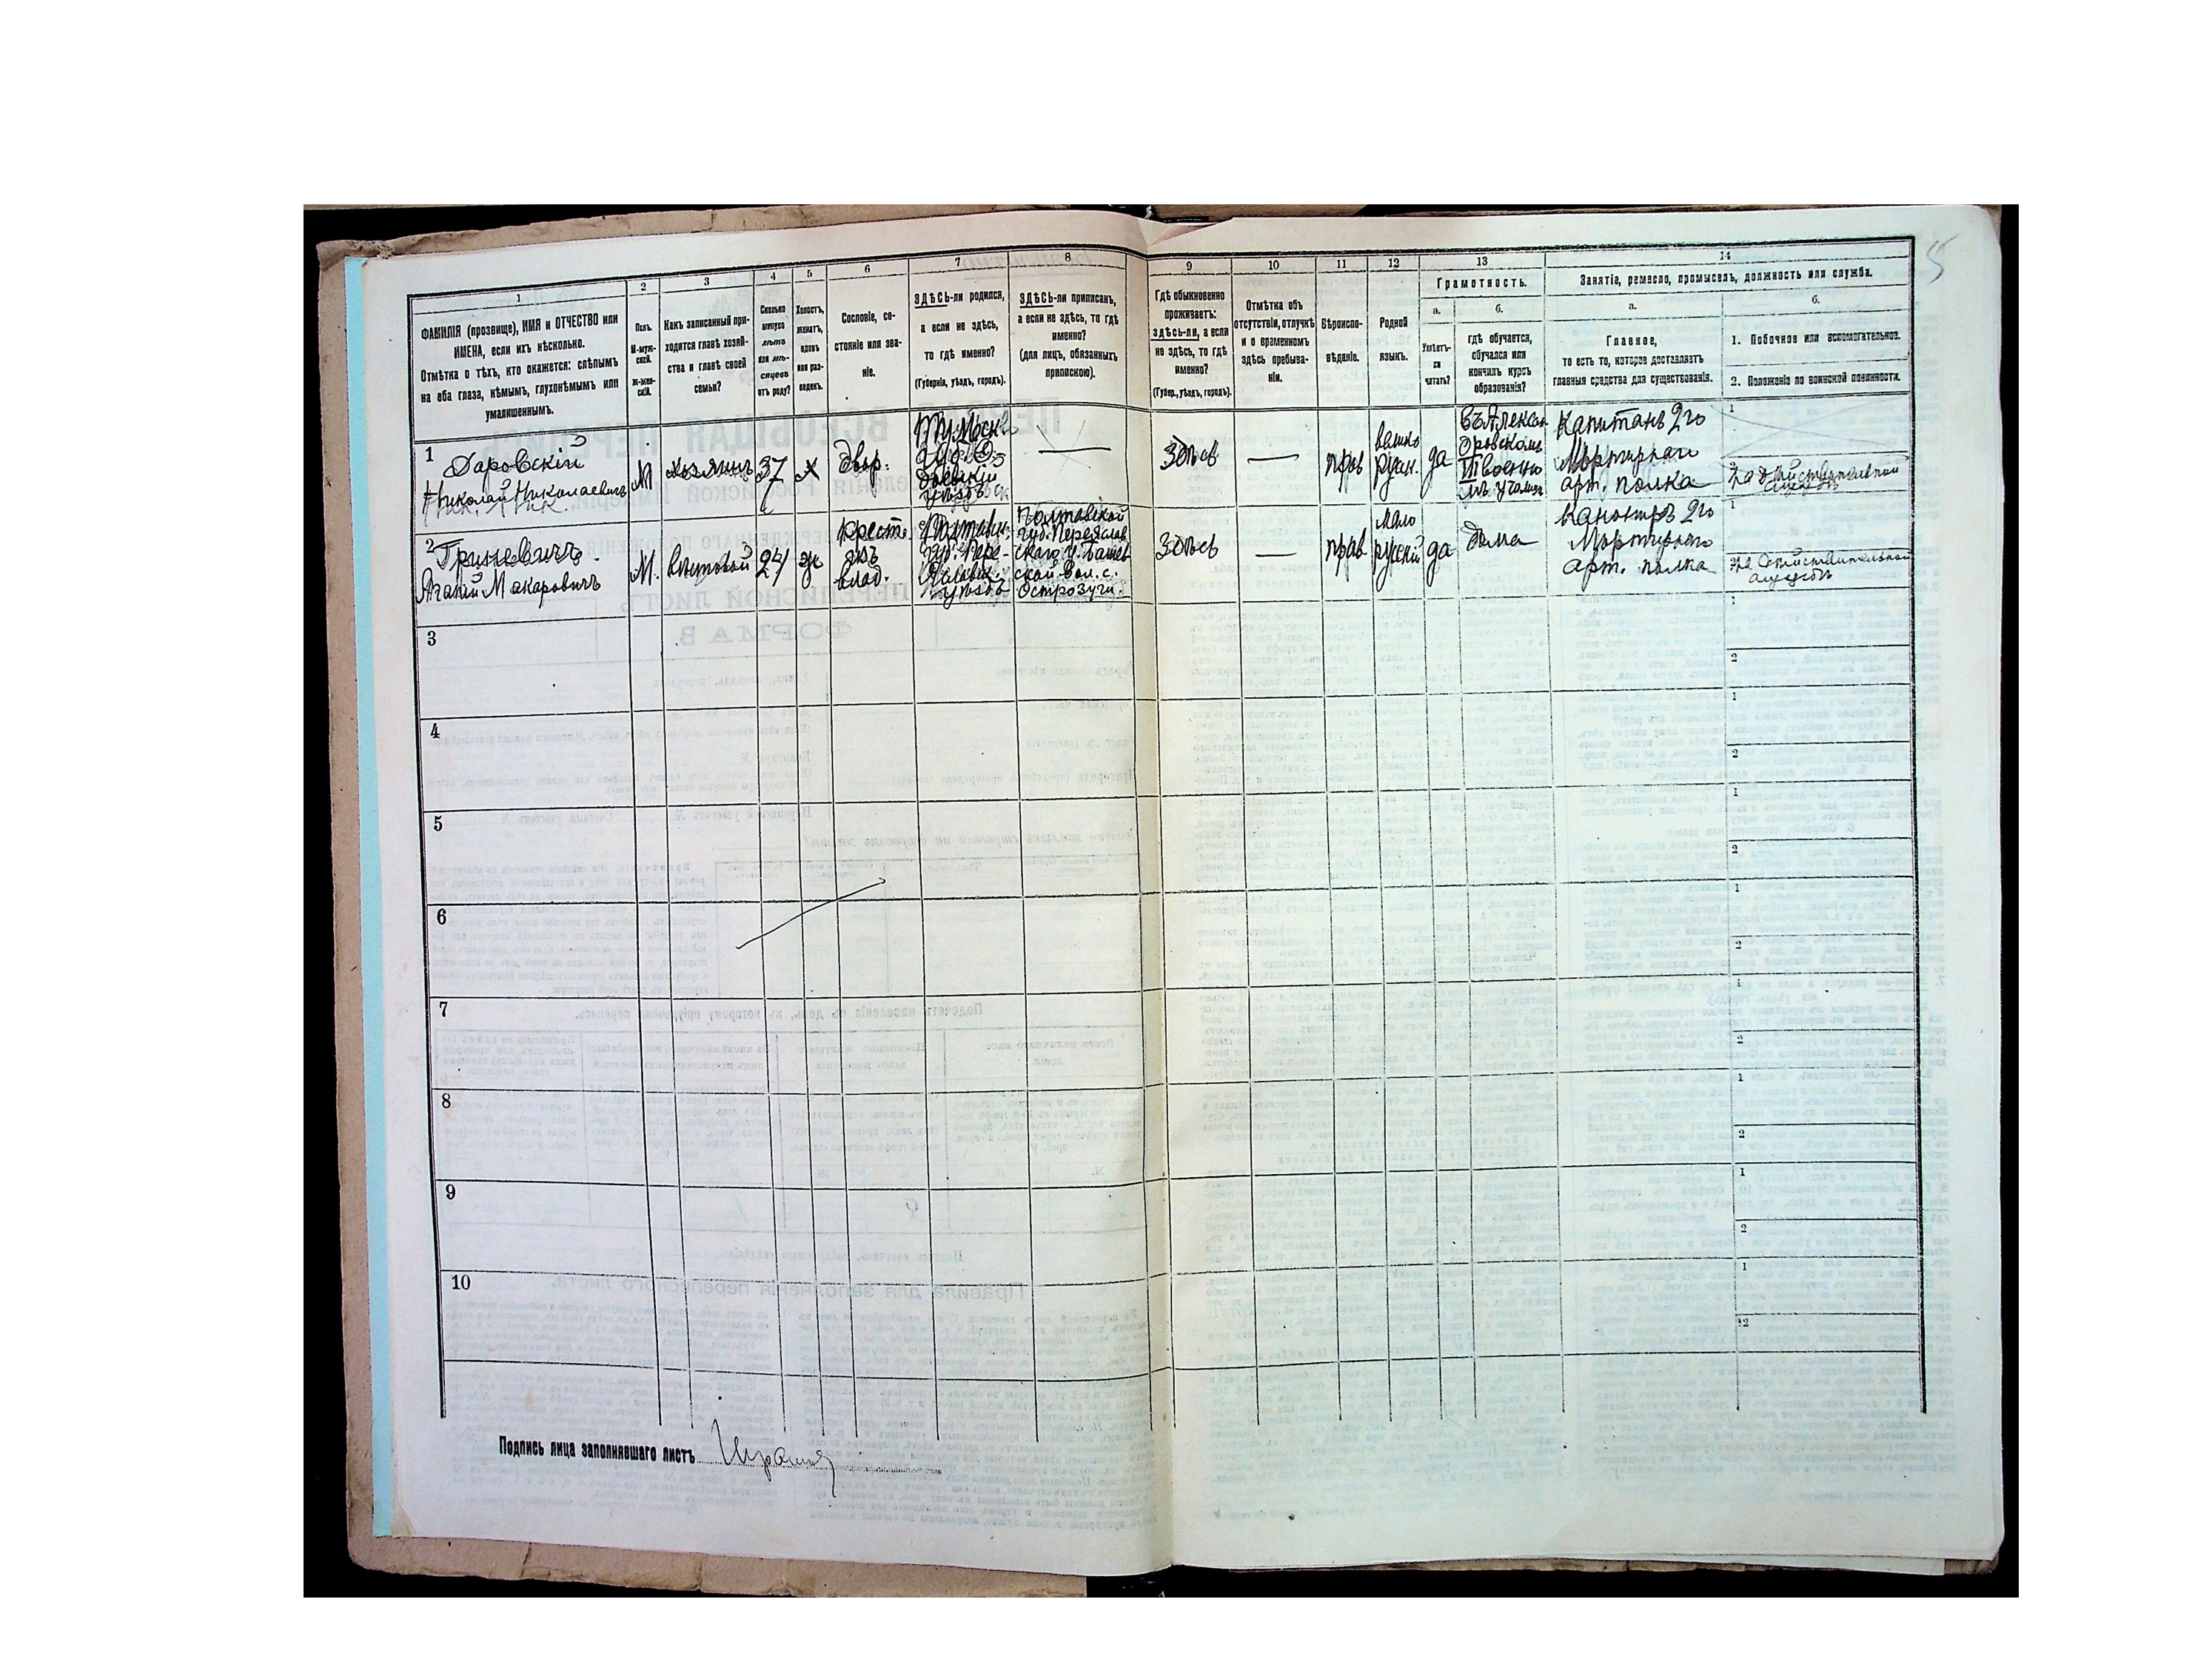 5
1
2
3
4
5
6
7
8
9
10
11
12
13
14
ФАМИЛІЯ (прозвище), ИМЯ и ОТЧЕСТВО или
ИМЕНА, если ихъ нѣсколько.
Отмѣтка о тѣхъ, кто окажется: слѣпымъ
на оба глаза, нѣмымъ, глухонѣмымъ или
умалишеннымъ.
Полъ.
М-муж-
ской.
Ж-жен-
скій.
Какъ записанный при-
ходится главѣ хозяй-
ства и главѣ своей
семьи?
Сколько
минуло
лѣтъ
или мѣ-
сяцевъ
отъ роду?
Холостъ,
женатъ,
вдовъ
или раз-
веденъ.
Сословіе, со-
стояніе или зва-
ніе.
ЗДѢСЬ-ли родился,
а если не здѣсь,
то гдѣ именно?
(Губернія, уѣздъ, городъ).
ЗДѢСЬ-ли приписанъ,
а если не здѣсь, то гдѣ
именно?
(для лицъ, обязанныхъ
припискою).
Гдѣ обыкновенно
проживаетъ:
здѣсь-ли, а если
не здѣсь, то гдѣ
именно?
(Губер., уѣздъ, городъ).
Отмѣтка объ
отсутствіи, отлучкѣ
и о временномъ
здѣсь пребыва-
ніи.
Вѣроиспо-
вѣданіе.
Родной
языкъ.
Грамотность.
а.
Умѣетъ-
ли
читать?
б.
гдѣ обучается,
обучался или
кончилъ курсъ
образованія?
Занятіе, ремесло, промыселъ, должность или служба.
а.
Главное,
то есть то, которое доставляетъ
главныя средства для существованія.
б.
1. Побочное или вспомогательное.
2. Положеніе по воинской повинности.
1
Даровскій
Николай Николаевичъ
М
хозяинъ
37
х
двор.
здѣсь
прав
велико
русск.
да
въ Алексан
дровскомъ
военно
мъ училищ
Капитанъ 2го
Мортирнаго
арт. полка
1
2
на дѣйствительной
службѣ
2
Гриневичъ
Агапій Макаровичъ
М.
вѣстовой
24
ж
крест.
изъ
влад.
Полтавск.
губ. Пере-
яславск.
уѣздѣ
Полтавской
губ. Переяслав
скаго у.
ской вол. с.
здѣсь
прав
мало
русскій
да
дома
Канониръ 2го
Мортирнаго
арт. полка
1
2
на дѣйствительной
службѣ
3
1
2
4
1
2
5
1
2
6
1
2
7
1
2
8
1
2
9
1
2
10
1
2
Подпись лица заполнявшаго листъ